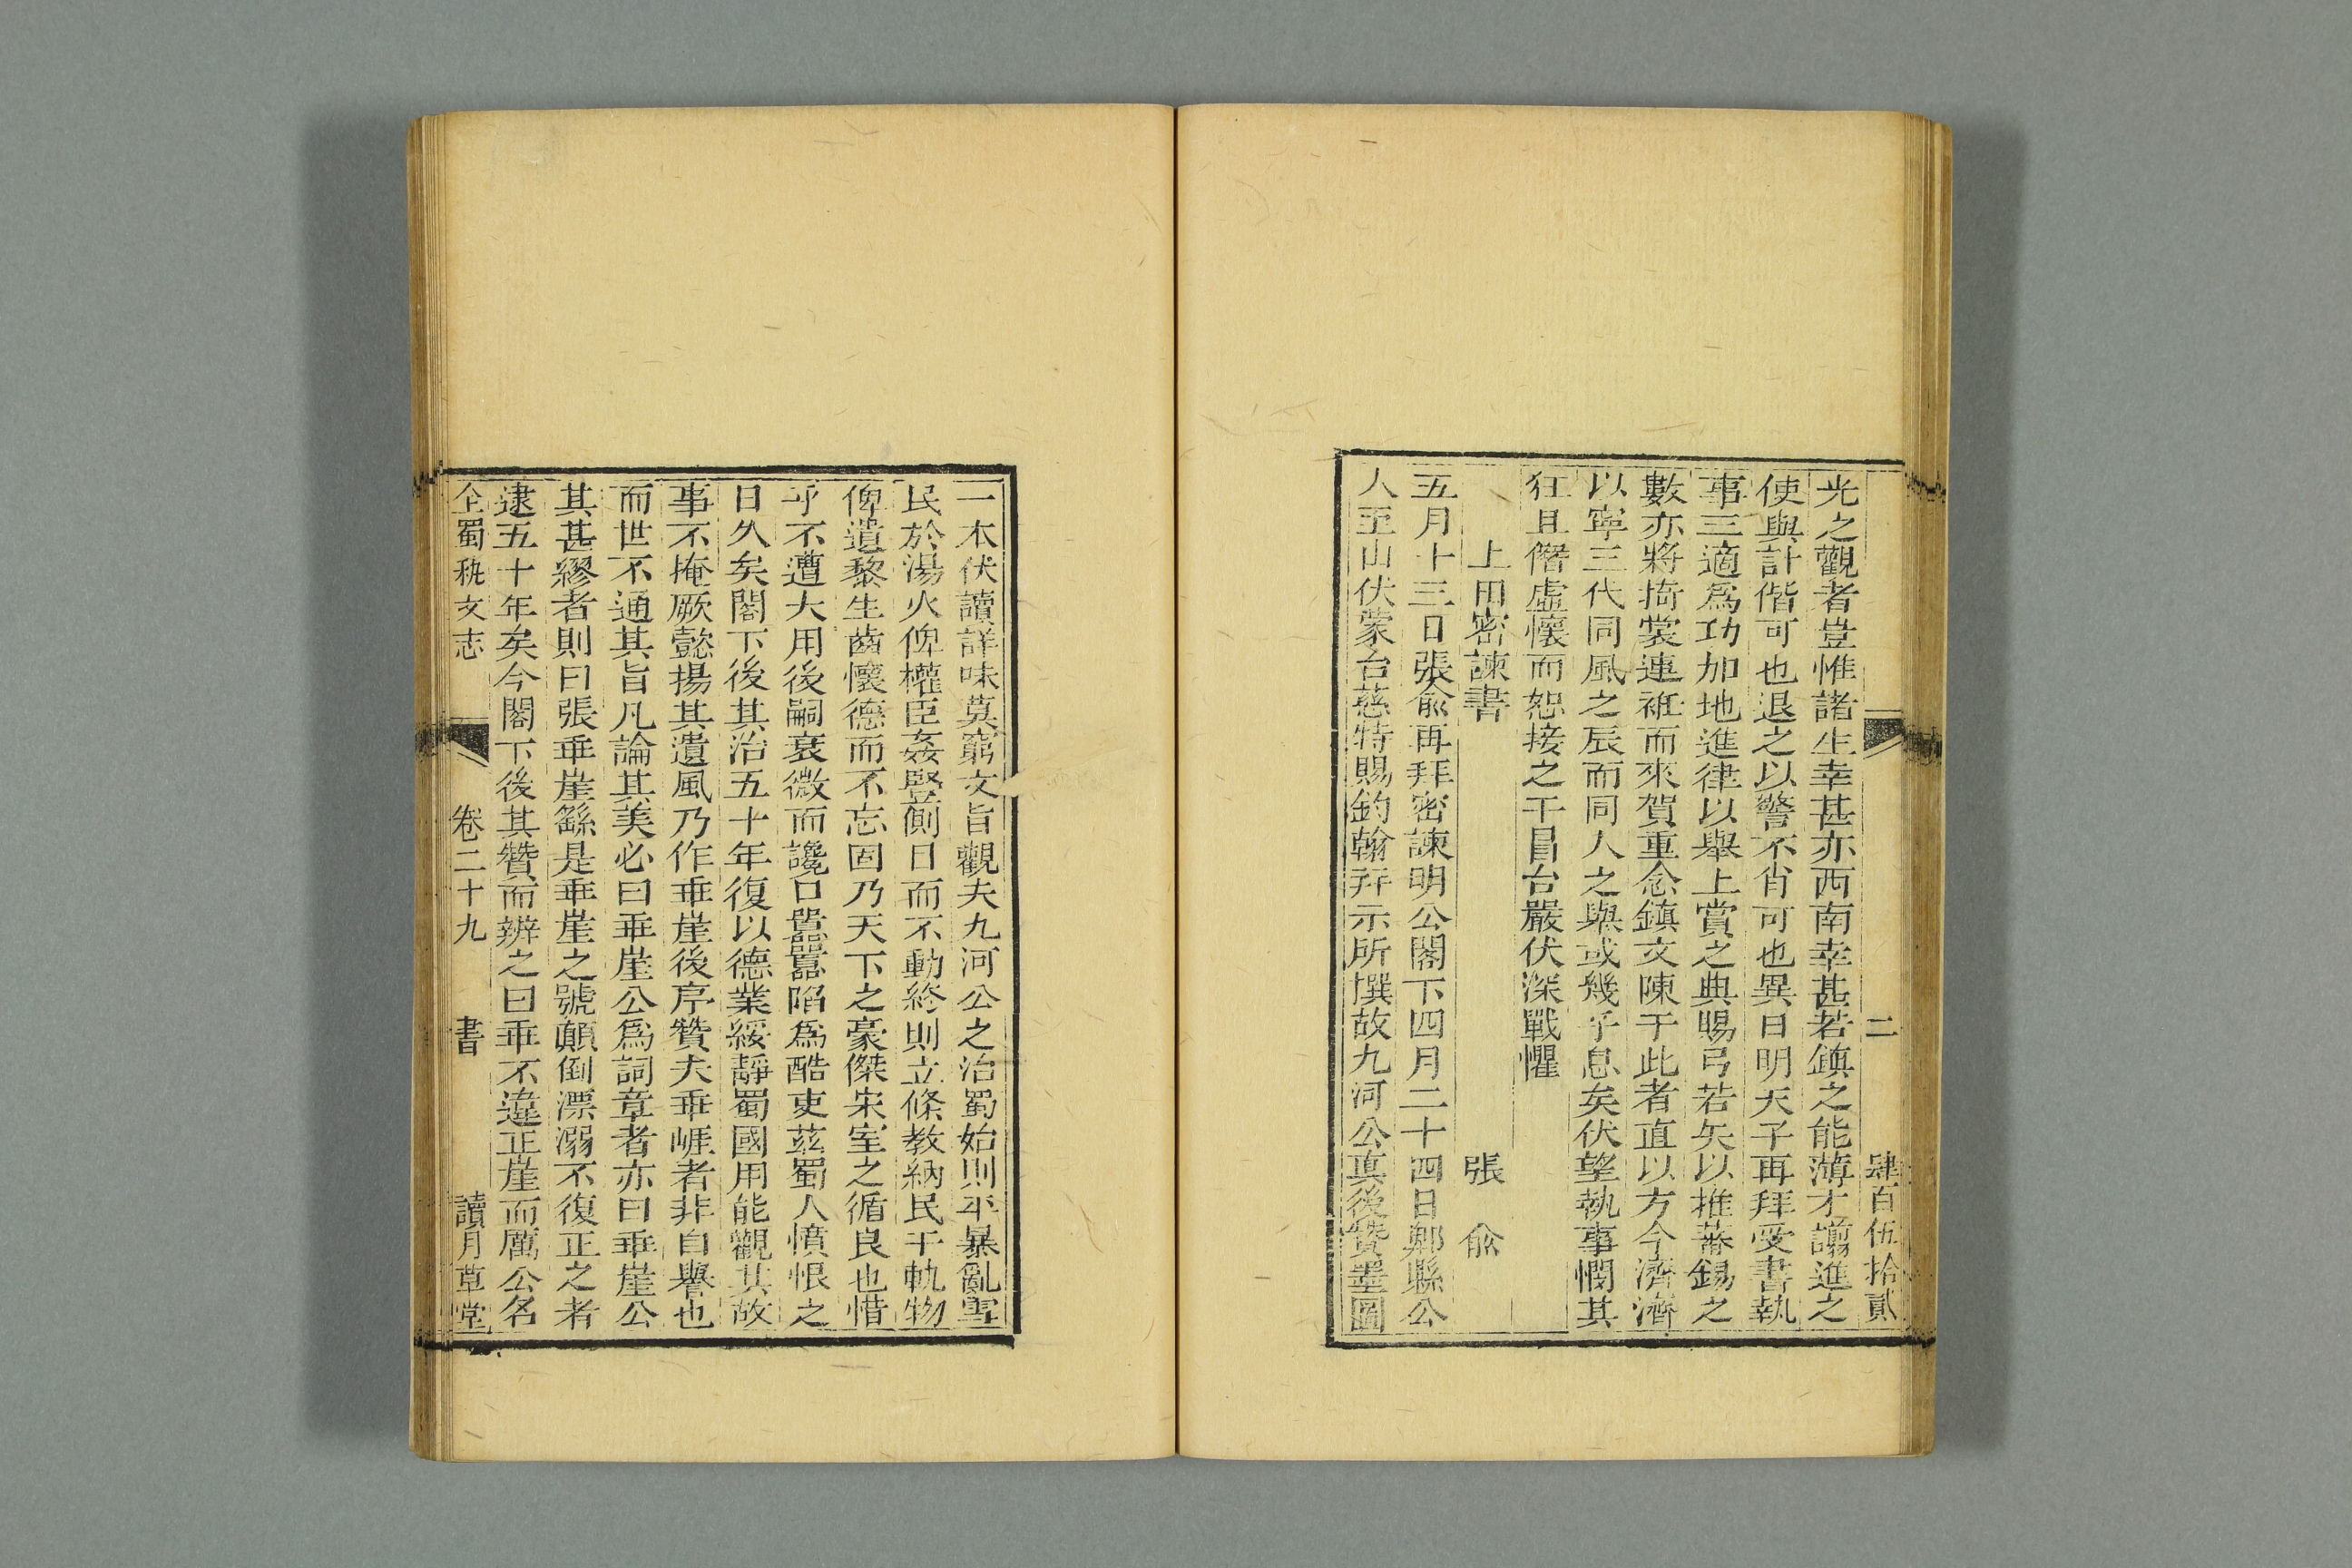 二 肆百伍拾貳
光之觀者豈惟諸生幸甚亦西南幸甚若鎮之能薄才譾進之
使與計偕可也退之以警不肖可也異日明天子再拜受書執
事三適爲功加地進律以舉上賞之典賜弓若矢以推蕃錫之
數亦將掎裳連袵而來賀重念鎮文陳于此者直以方今濟濟
以寧三代同風之辰而同人之與或幾乎息矣伏望執事憫其
狂且僭虛懷而恕接之干冒台嚴伏深戰懼
上田密諫書 張 俞
五月十三日張俞再拜密諫明公閣下四月二十四日鄰縣公
人至山伏蒙台慈特賜釣翰并示所撰故九河公眞後贊墨圖
一本伏讀詳味莫窮文旨觀夫九河公之治蜀始則平暴亂雪
民於湯火俾權臣姦豎側目而不動終則立條教納民于軌物
俾遺黎生齒懷德而不忘固乃天下之豪傑宋室之循良也惜
乎不遭大用後嗣衰微而讒口嚚嚚陷爲酷吏茲蜀人憤恨之
日久矣閣下後其治五十年復以德業綏靜蜀國用能觀其故
事不掩厥懿揚其遺風乃作垂崖後序贊夫垂崕者非自譽也
而世不通其旨凡論其美必曰垂崖公爲詞章者亦曰垂崖公
其甚繆者則曰張垂崖繇是垂崖之號顛倒漂溺不復正之者
逮五十年矣今閣下後其贊而辨之曰垂不違正崖而厲公名
全蜀秇文志 卷二十九 書 讀月草堂